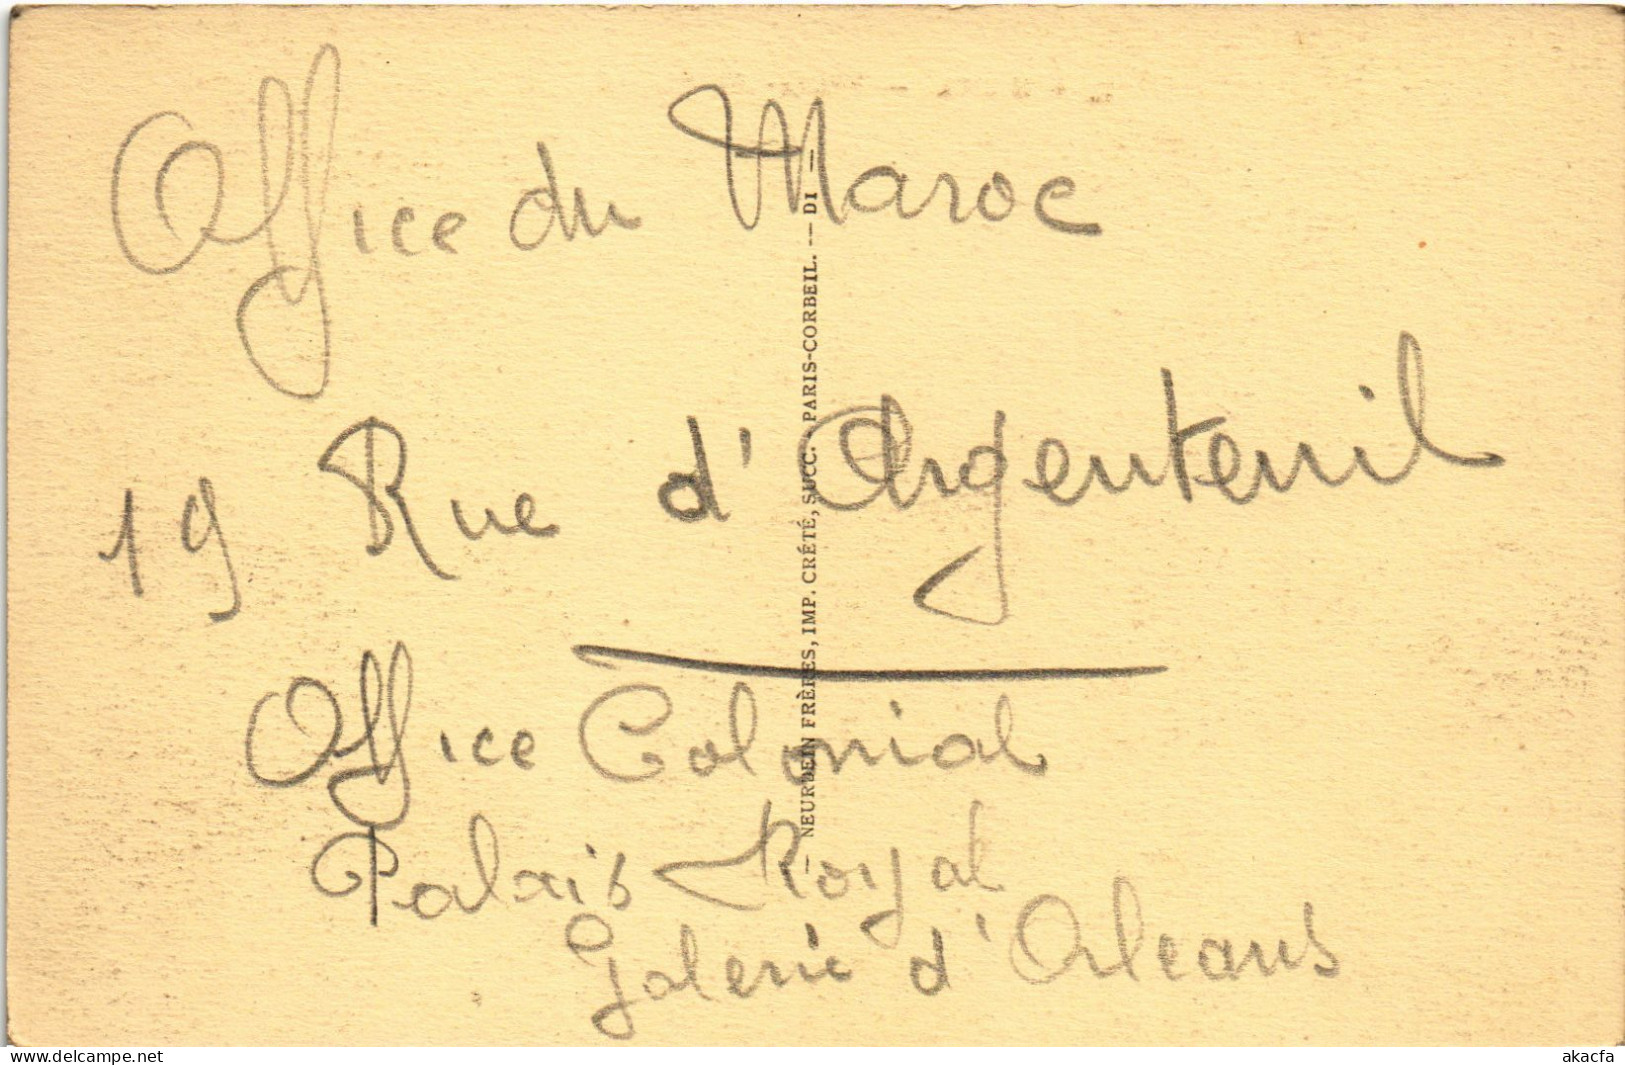 Office du Maroc
19 Rue d'Argenteuil
Office Colonial
Palais Royal
Galerie d'Orleans
— NEURDEIN FRÈRES, IMP. CRÉTÉ, SUCC. PARIS-CORBEIL. — DI —
www.delcampe.net
akacfa